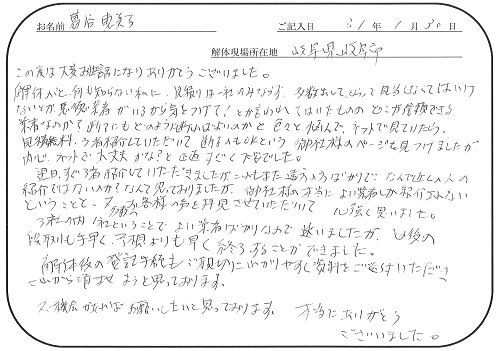 お名前 葛谷 恵美子
ご記入日 31年1月30日
解体現場所在地 岐阜県岐阜市
この度は大変お世話になりありがとうございました。
解体など何も知らない私に、見積りは一社のみならず、多数出してもらって見当しなくてはいけ
ないとか、悪徳業者がいるから気をつけて!とか言われてはいたものの どこが信頼できる
業者なのか?断るにもどのように断ればよいのかと色々と悩んで、ネットで見ていたら、
見積無料、3者紹介していただいて 断るのもOKという 御社様のページを見つけましたが
内心、ネットで大丈夫かな?と正直すごく不安でした。
翌日、すぐ3者紹介していただきましたが
紹介ではないのか?なんて思っておりましたが、御社様の本当によい業者しか紹介されない
ということで、又 多数の 各様の声を拝見させていただいて 心強く思いました。
3社の内1社ということで よい業者ばかりなので迷いましたが、その後の
段取りも手早く、予想よりも早く終了することができました。
解体後の登記手続も ご親切に分かりやすく資料をご送付いただいて
これから済まそうと思っております。
又、機会があればお願いしたいと思っております。 本当にありがとう
ございました。